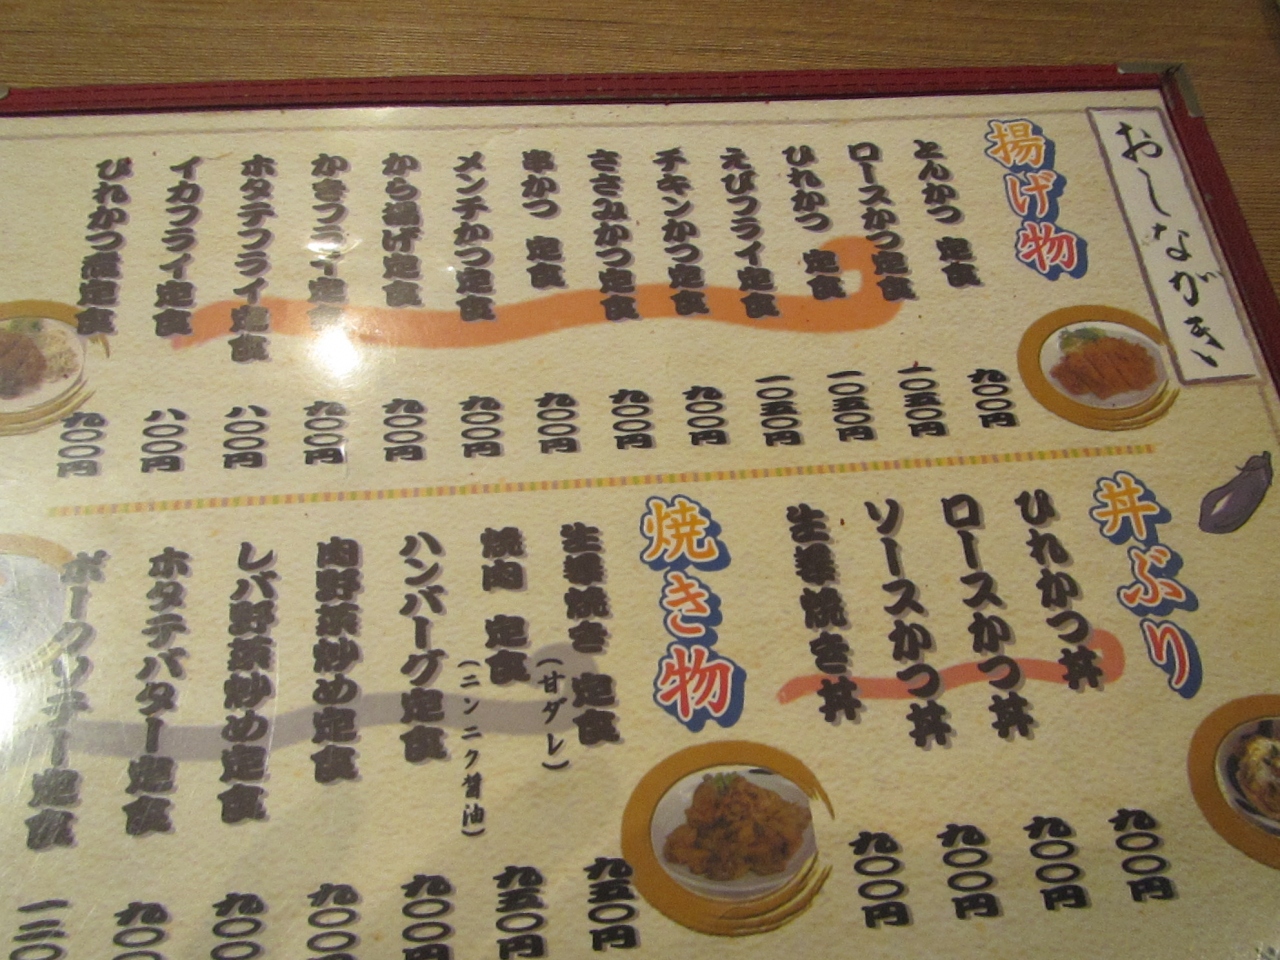 おしながき
揚げ物
とんかつ 定食 九〇〇円
ロースかつ定食 一〇五〇円
ひれかつ 定食 一〇五〇円
えびフライ定食 一〇五〇円
チキンかつ定食 九〇〇円
ささみかつ定食 九〇〇円
串かつ 定食 九〇〇円
メンチかつ定食 九〇〇円
から揚げ定食 九〇〇円
かきフライ定食 九〇〇円
ホタテフライ定食 八〇〇円
イカフライ定食 八〇〇円
九〇〇円
丼ぶり
ひれかつ丼 九〇〇円
ロースかつ丼 九〇〇円
ソースかつ丼 九〇〇円
生姜焼き丼 九〇〇円
焼き物
生姜焼き 定食 九五〇円
(甘ダレ)
焼肉 定食 九五〇円
(ニンニク醤油)
ハンバーグ定食 九〇〇円
肉野菜炒め定食 九〇〇
レバ野菜炒め定食 九〇〇
ホタテバター定食 九〇
ポークソテー定食